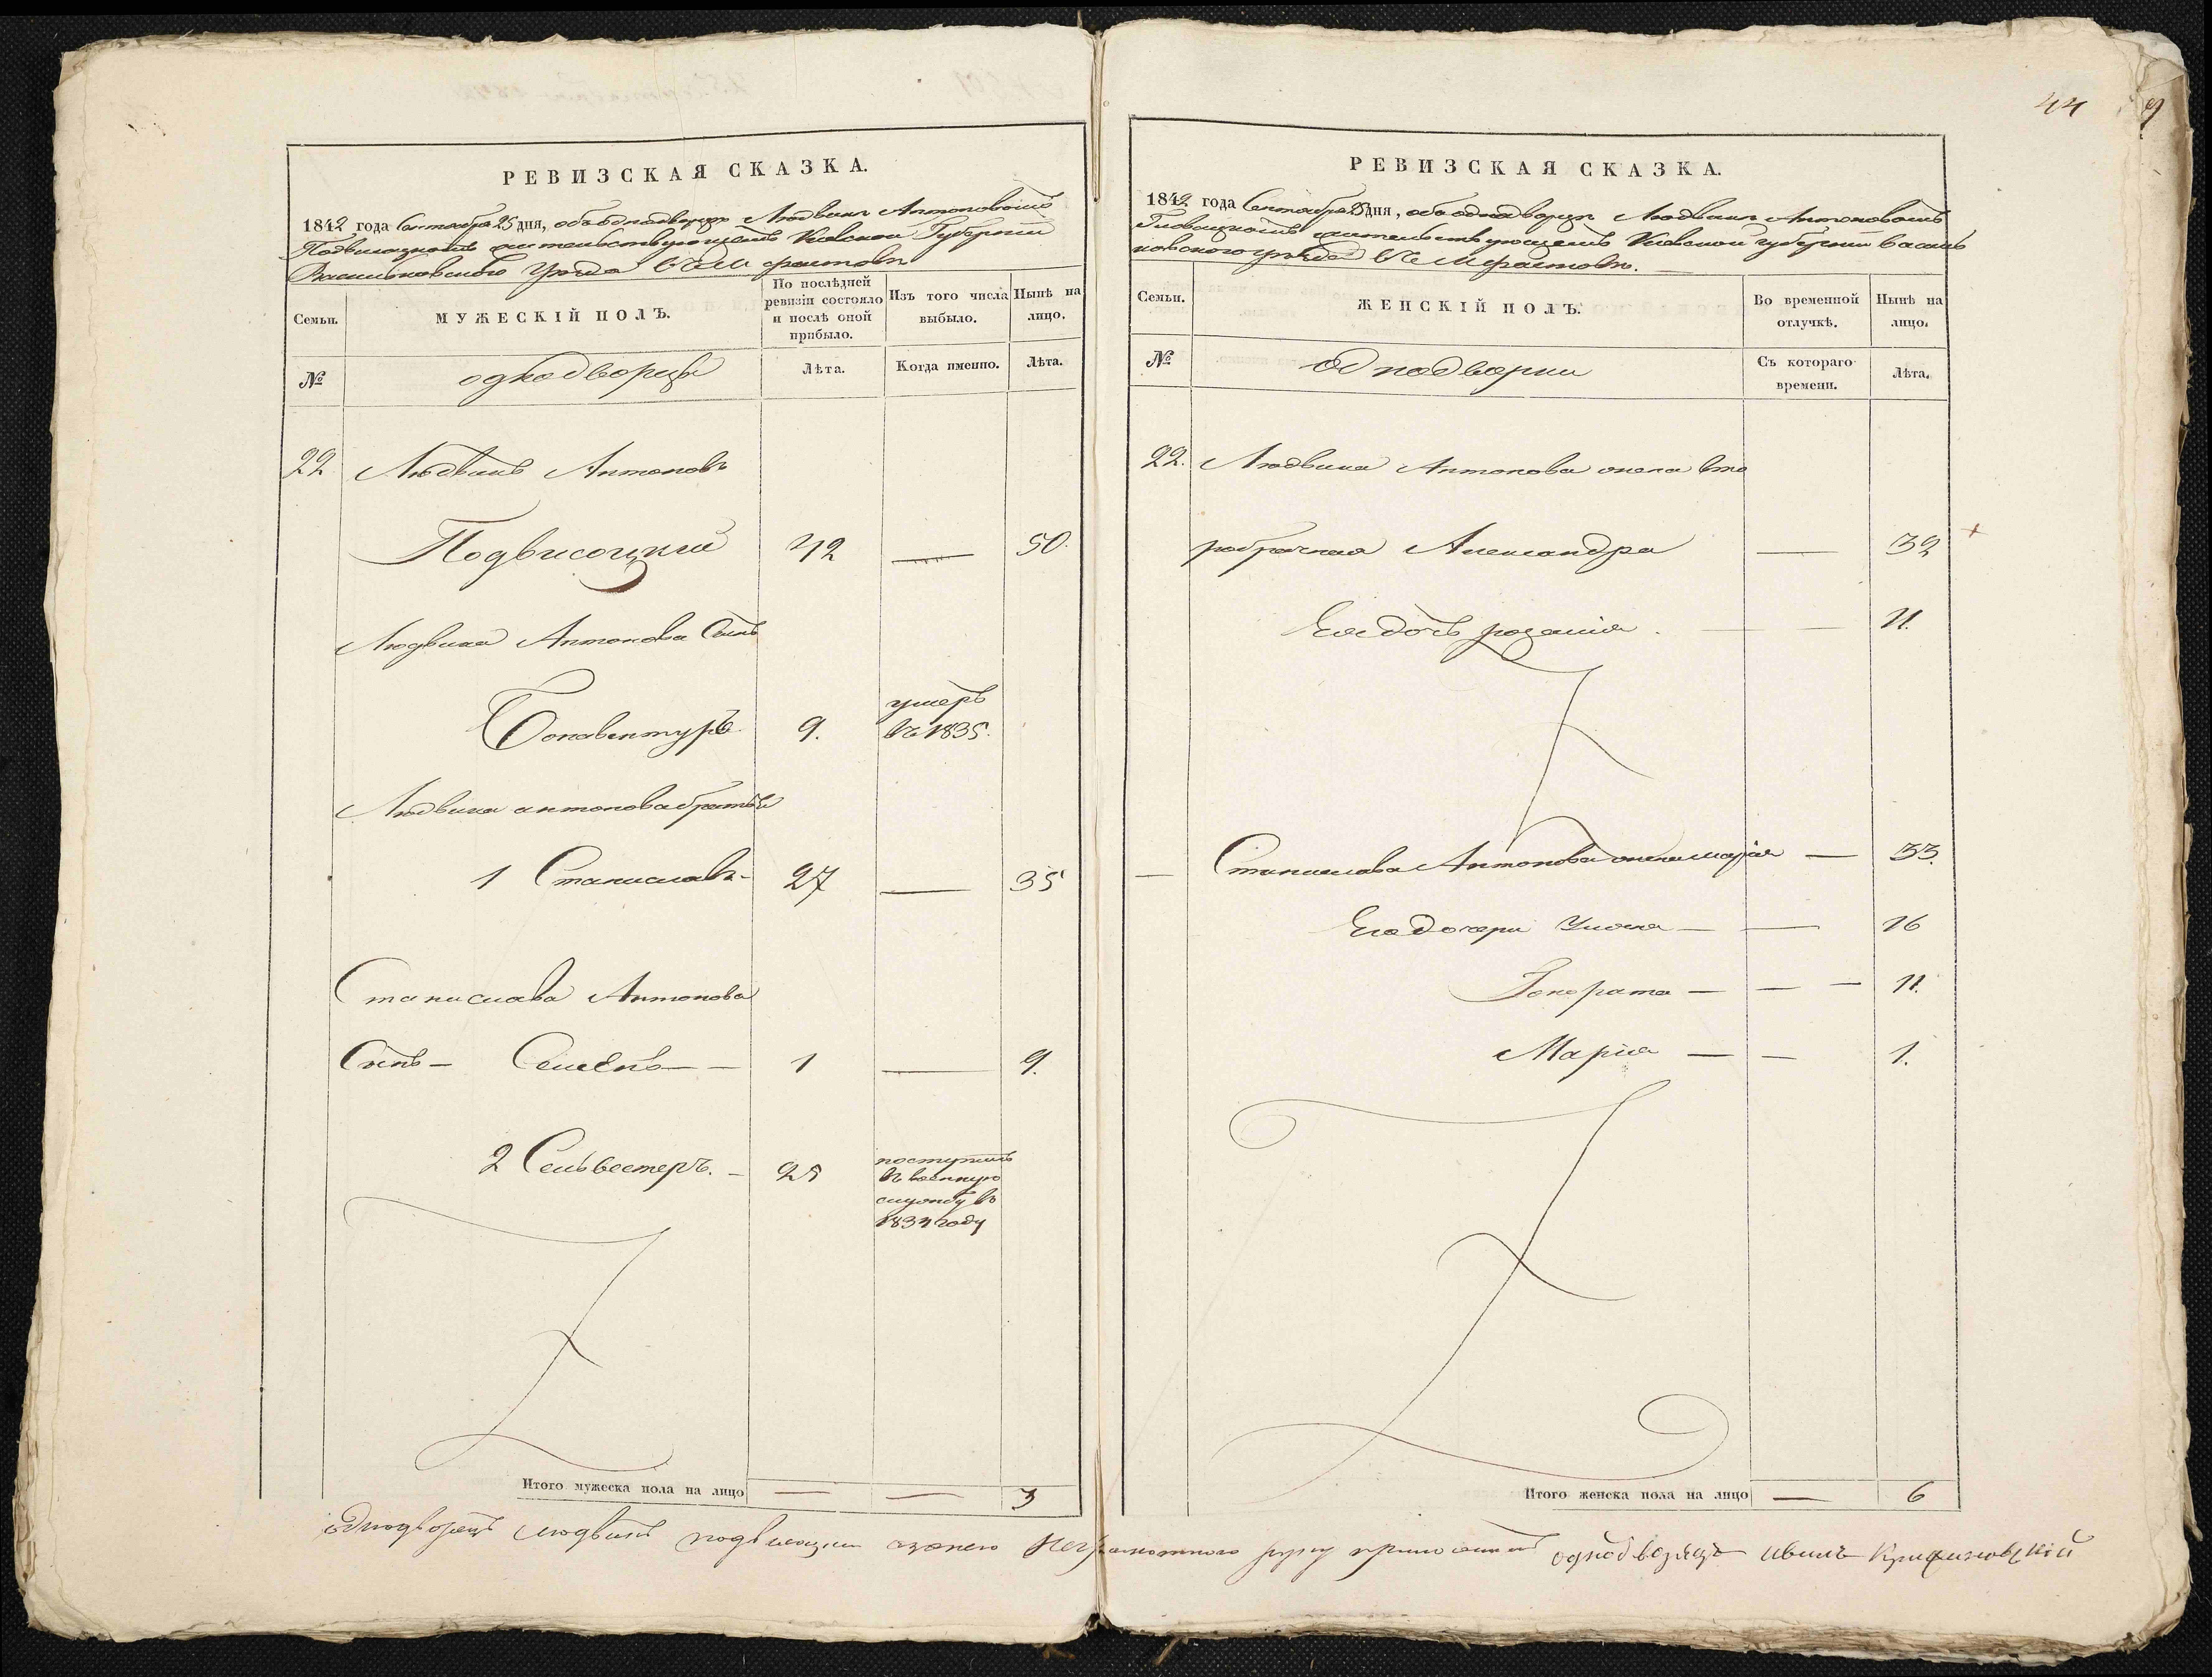 44
РЕВИЗСКАЯ СКАЗКА.
1842 года Сентября 25 дня, объ однодворцѣ Людвикѣ Антоновомъ
Подвисоцкомъ жительствующемъ Кіевской Губерніи
Васильковскаго Уезда въ М Фастовѣ
Семьи.
МУЖЕСКІЙ ПОЛЪ.
По послѣдней ревизіи состояло и послѣ оной прибыло.
Изъ того числа выбыло.
Нынѣ на лицо.
№
однодворцы
Лѣта.
Когда именно.
Лѣта.
22 Людвикъ Антоновъ
Подвисоцкий 42 — 50.
Людвика Антонова Сынъ
Бонавентуръ 9. умеръ въ 1835.
Людвика антонова братья
1 Станиславъ 27 — 35
Станислава Антонова
Сынъ — Семенъ — 1 — 9.
2 Сельвестеръ. — 25 поступилъ
въ военную
службу въ
1834 году
Итого мужеска пола на лицо — — 3
РЕВИЗСКАЯ СКАЗКА.
1842 года Сентября 25 дня, объ однодворцѣ Людвикѣ Антоновомъ
жительствующемъ Кіевской губерніи Василь
ковского уѣзда въ М Фастовѣ.
Семьи.
ЖЕНСКІЙ ПОЛЪ.
Во временной отлучкѣ.
Нынѣ на лицо.
№
Однодворки
Съ котораго времени.
Лѣта.
22. Людвика Антонова жена вто
робрачная Александра — 32
Его дочь — 11.
Станислава Антонова жена марія — 33.
Его дочери — 16
Гонората — — — 11.
Марія — — 1.
Итого женска пола на лицо — 6
однодворецъ людвикъ подвисоцки а за него неграмотного руку приложилъ однодворецъ